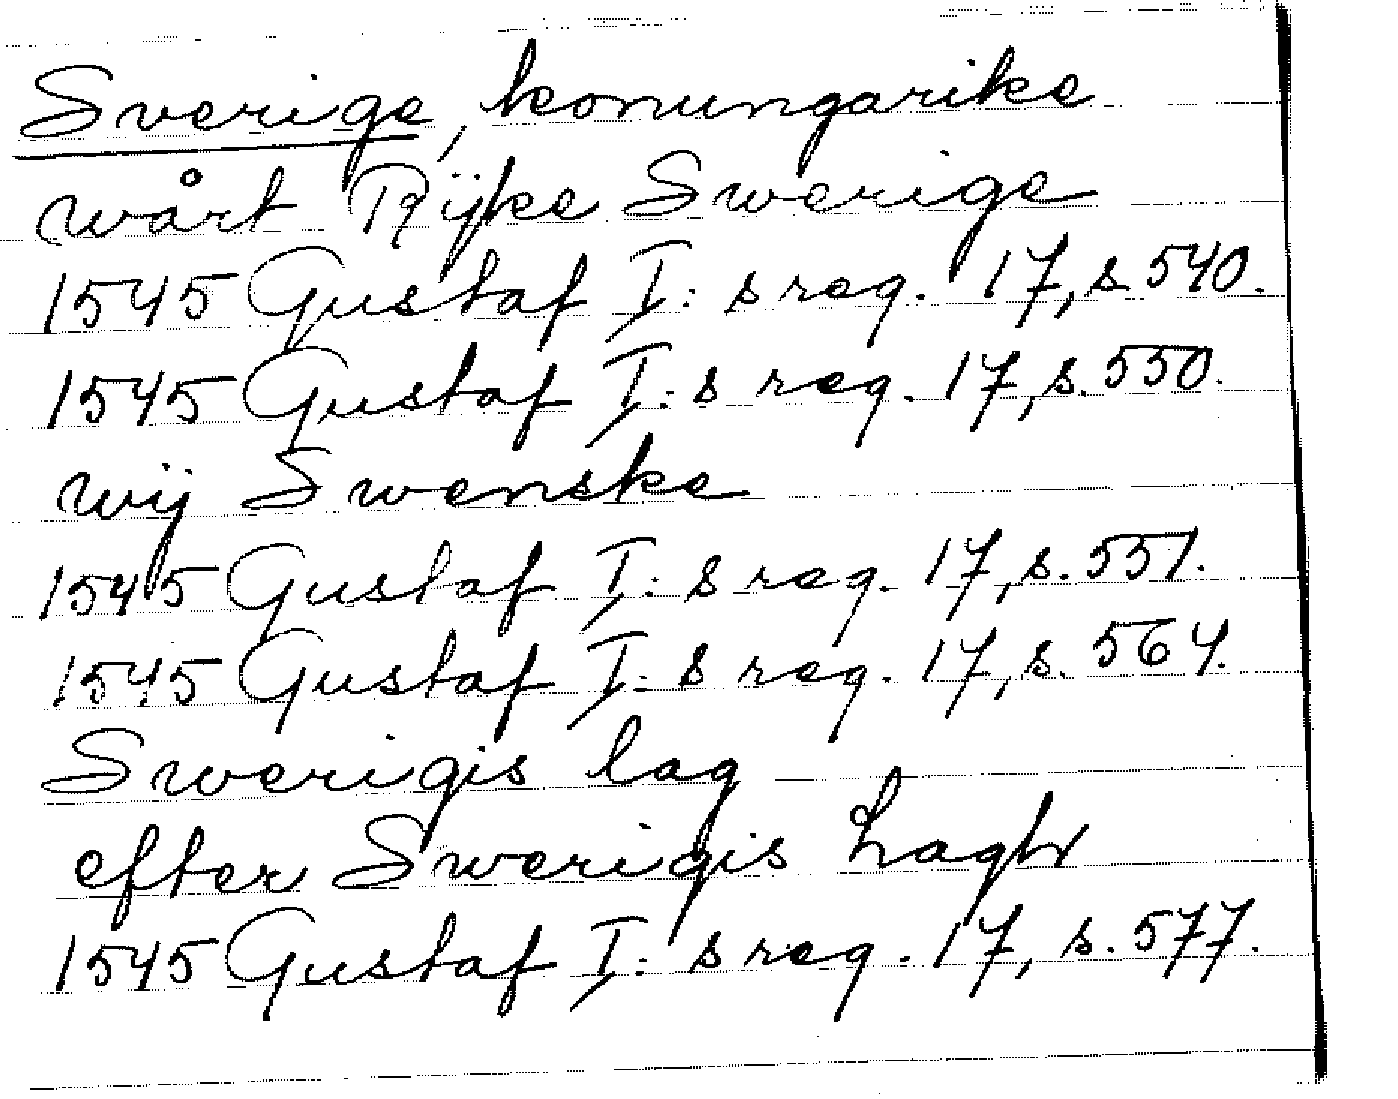 Sverige, konungarike
wårt Rÿke Swerige
1545 Gustaf I: s reg. 17, s 540.
1545 Gustaf I: s reg. 17, s. 550.
wÿ Swenske
1545 Gustaf I: s reg. 17, s. 551.
1545 Gustaf I: s reg. 17, s. 564.
Swerigis lag
efter Swerigis Lagh
1545 Gustaf I: s reg. 17, s. 577.